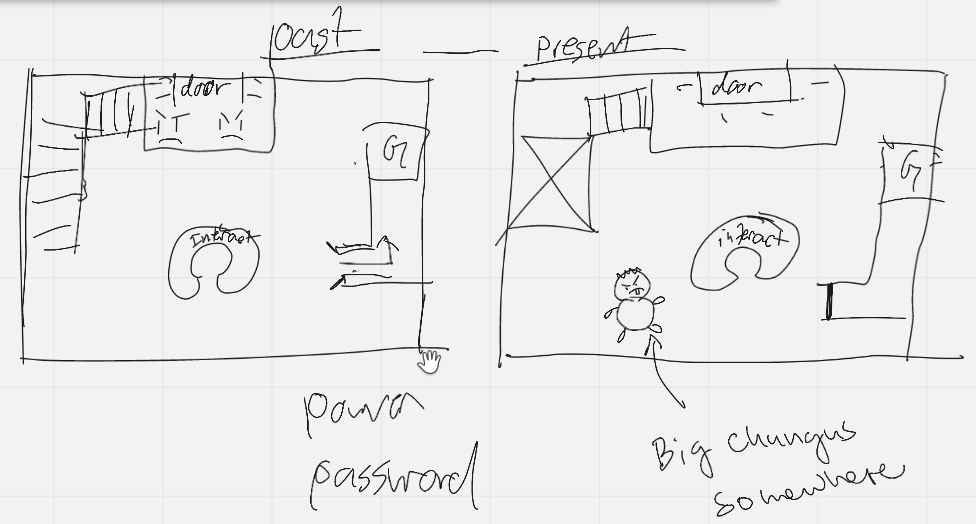 past
present
door
door
G
G
Interact
interact
power
password
Big changus
somewhere